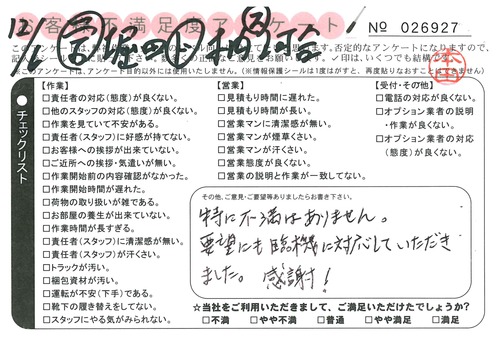 お客様不満足度アンケート
No 026927
チェックリスト
【作業】
□責任者の対応(態度)が良くない。
□他のスタッフの対応(態度)が良くない。
□作業を見ていて不安がある。
□責任者(スタッフ)に好感が持てない。
□お客様への挨拶が出来ていない。
□ご近所への挨拶・気遣いが無い。
□作業開始前の内容確認がなかった。
□作業開始時間が遅れた。
□荷物の取り扱いが雑である。
□お部屋の養生が出来ていない。
□作業時間が長すぎる。
□責任者(スタッフ)に清潔感が無い。
□責任者(スタッフ)が汗くさい。
□トラックが汚い。
□梱包資材が汚い。
□運転が不安(下手)である。
□靴下の履き替えをしてない。
□スタッフにやる気がみられない。
【営業】
□見積もり時間に遅れた。
□見積もり時間が長い。
□営業マンに清潔感が無い。
□営業マンが煙草くさい。
□営業マンが汗くさい。
□営業態度が良くない。
□営業の説明と作業が一致してない。
【受付・その他】
□電話の対応が良くない。
□オプション業者の説明
・作業が良くない。
□オプション業者の対応
(態度)が良くない。
その他、ご意見・ご要望等ありましたらお書き下さい。
特に不満はありません。
要望にも臨機に対応していただき
ました。感謝!
☆当社をご利用いただきまして、ご満足いただけたでしょうか?
□不満 □やや不満 □普通 □やや満足 □満足